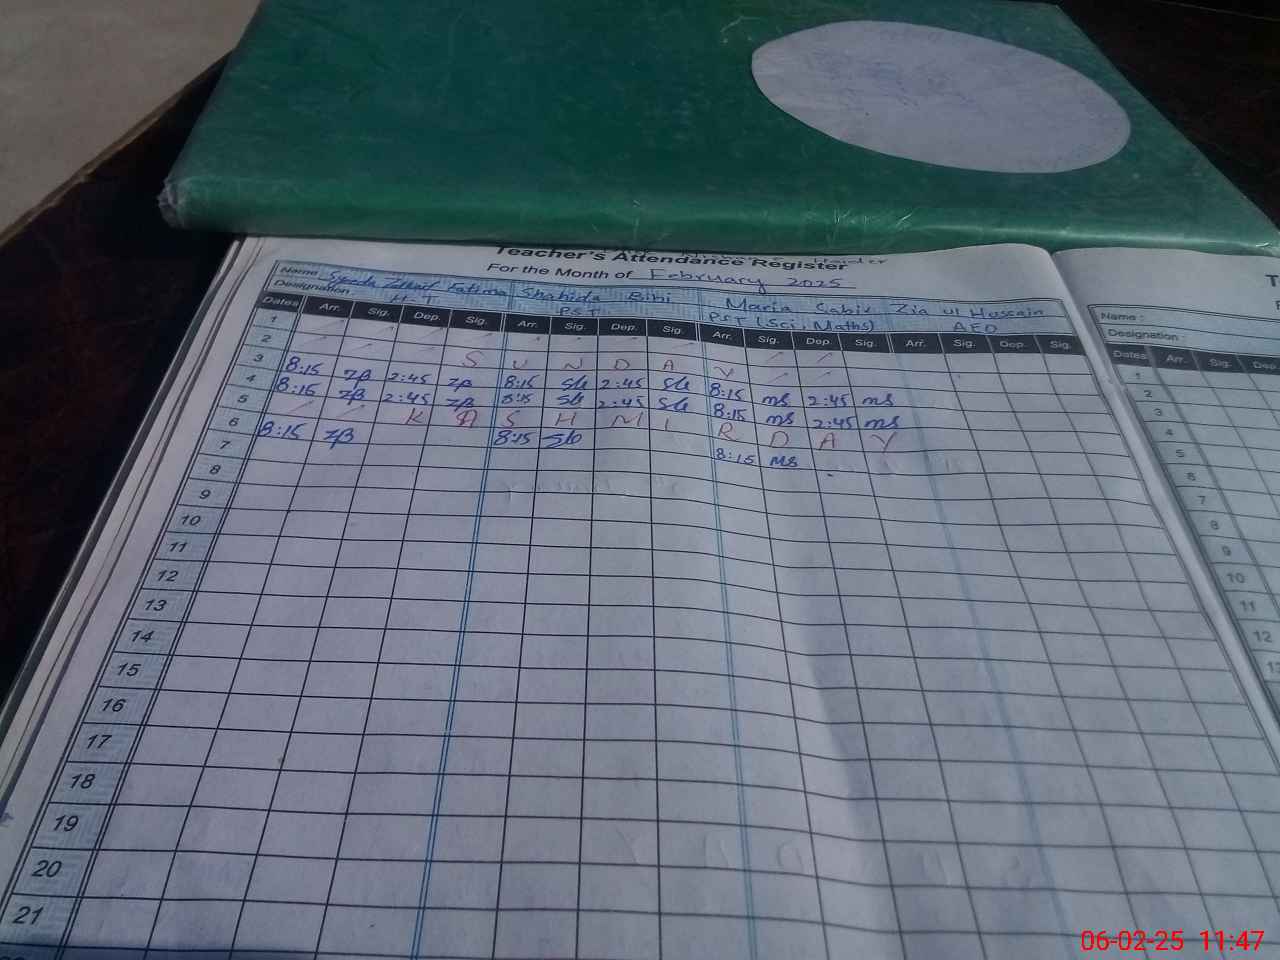 Teacher's Attendance Register
For the Month of February 2025
Name Syeda Fatima Shahida Bibi Maria Sabir Zia ul Hussain
Designation H-T PST PST (Sci, Maths) AEO
Dates Arr. Sig. Dep. Sig. Arr. Sig. Dep. Sig. Arr. Sig. Dep. Sig. Arr. Sig. Dep. Sig.
1
2 S U N D A Y
3 8:15 ZB 2:45 ZB 8:15 Sb 2:45 Sb 8:15 ms 2:45 ms
4 8:15 ZB 2:45 ZB 8:15 Sb 2:45 Sb 8:15 ms 2:45 ms
5 K A S H M I R D A Y
6 8:15 ZB 8:15 Sb 8:15 ms
7
8
9
10
11
12
13
14
15
16
17
18
19
20
21
Name :
Designation :
Dates Arr. Sig. Dep.
1
2
3
4
5
6
7
8
9
10
11
12
06-02-25 11:47